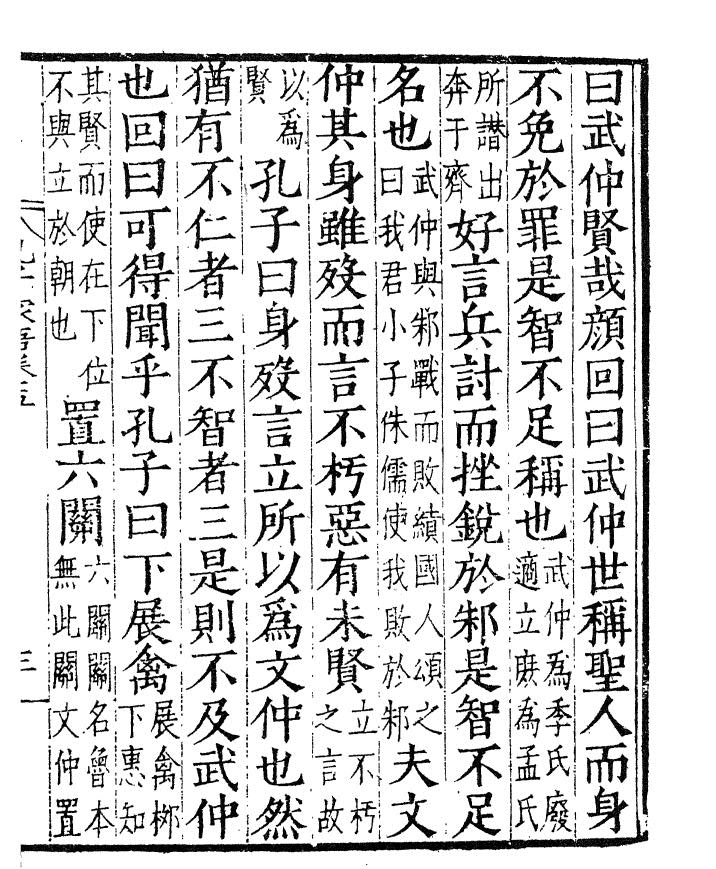 曰武仲賢哉顏回曰武仲世稱聖人而身
不免於罪是智不足稱也武仲為季氏廢適立庶為孟氏
所譖出奔于齊好言兵討而挫銳於邾是智不足
名也武仲與邾戰而敗績國人頌之曰我君小子侏儒使我敗於邾夫文
仲其身雖歿而言不朽惡有未賢立不朽之言故
以為賢孔子曰身歿言立所以爲文仲也然
猶有不仁者三不智者三是則不及武仲
也回曰可得聞乎孔子曰下展禽展禽柳下惠知
其賢而使在下位不與立於朝也置六關六關關名魯本無此關文仲置